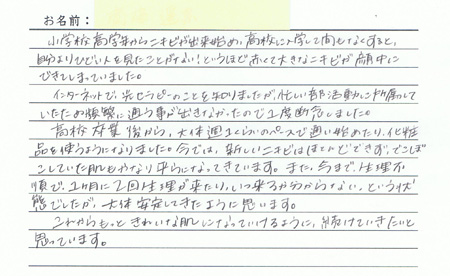 お名前：
小学校高学年からニキビが出来始め、高校に入学して間もなくすると、
自分よりひどい人を見たことがない！というほど赤くて大きなニキビが顔中に
できてしまっていました。
インターネットで光セラピーのことを知りましたが、忙しい部活動に所属して
いたため頻繁に通う事が出来なかったので1度断念しました。
高校卒業後から、大体週1くらいのペースで通い始めたり、化粧
品を使うようになりました。今では、新しいニキビはほとんどできず、でこぼ
こしていた肌もかなり平らになってきています。また、今まで、生理不
順で、1ヶ月に2回生理が来たり、いつ来るか分からない、という状
態でしたが、大体安定してきたように思います。
これからもっときれいな肌になっていけるように、続けていきたいと
思っています。